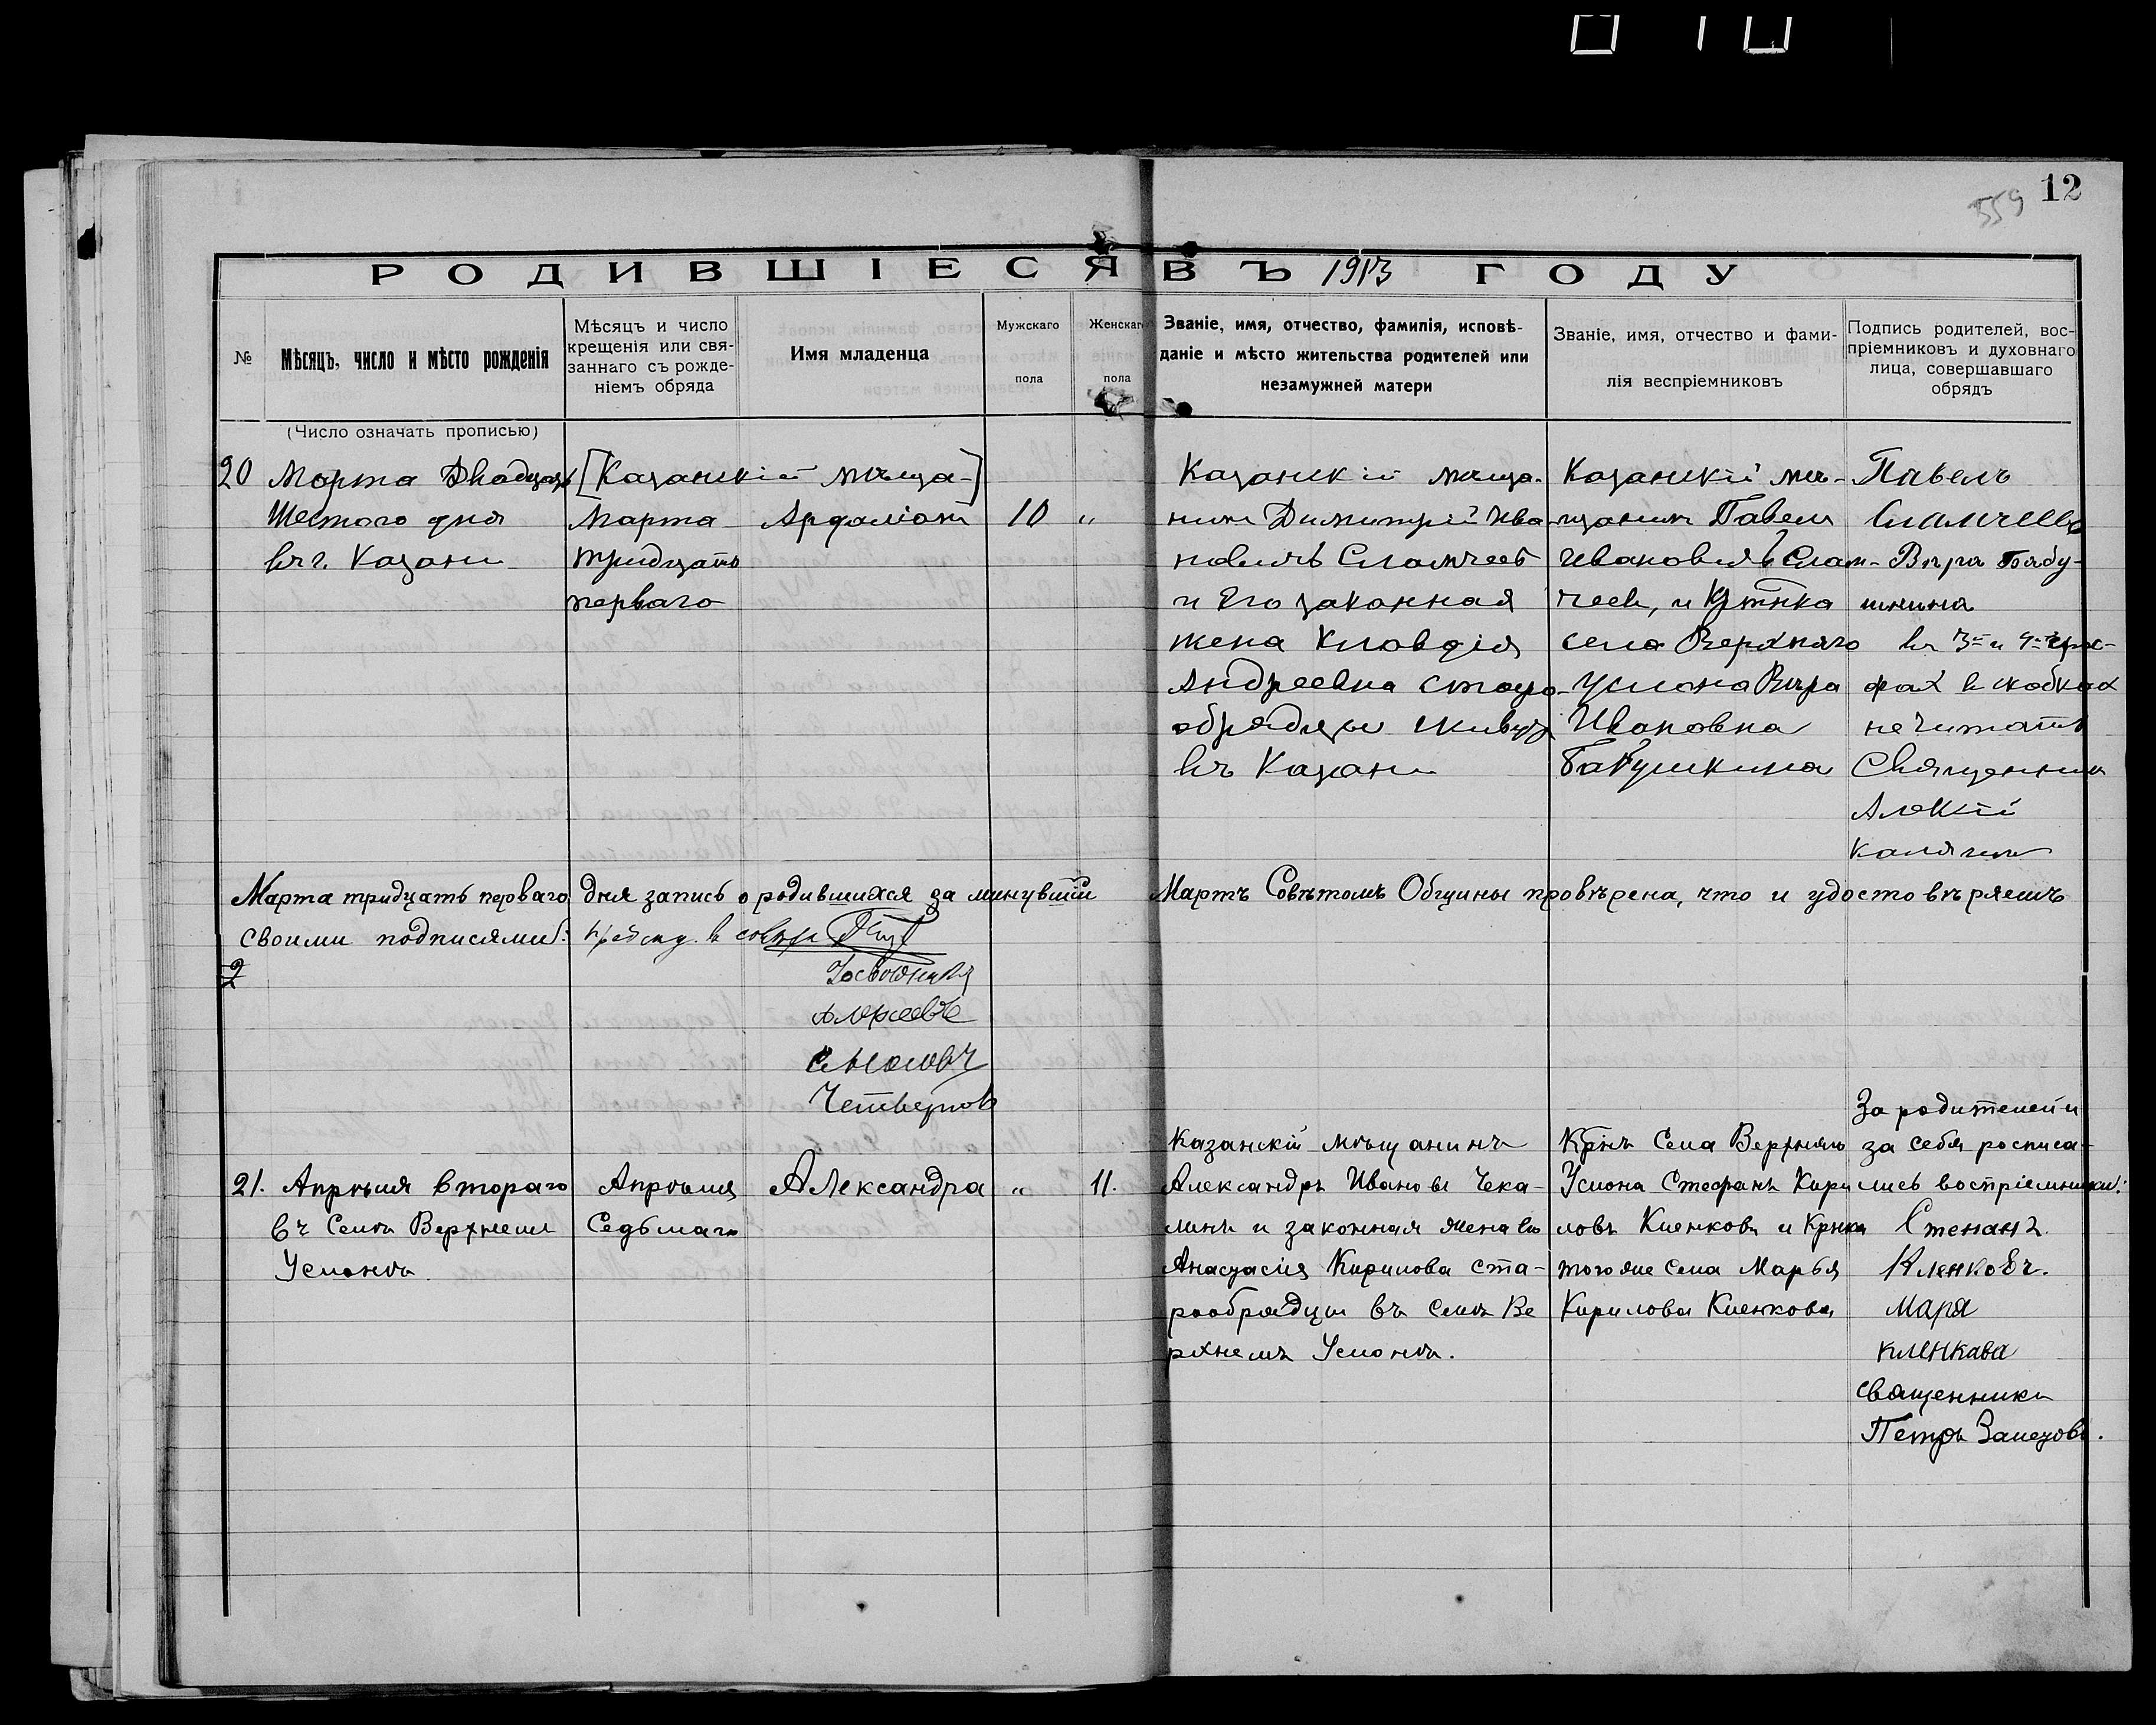 12
559
РОДИВШІЕСЯ ВЪ 1913 ГОДУ
№
Мѣсяцъ, число и мѣсто рожденія
Мѣсяцъ и число
крещенія или свя-
заннаго съ рожде-
ніемъ обряда
Имя младенца
Мужскаго
пола
Женскаг
пола
Званіе, имя, отчество, фамилія, исповѣ-
даніе и мѣсто жительства родителей или
незамужней матери
Званіе, имя, отчество и фами-
лія веспріемниковъ
Подпись родителей, вос-
пріемниковъ и духовнаго
лица, совершавшаго
обрядъ
(Число означать прописью)
20
Марта Двадцать
Шестого дня
въ г. Казани
[Казанскій мѣща-]
Марта
тридцать
перваго
Ардаліон
10
"
Казанскій мѣща-
нин Димитрій Ива-
новичъ
и его законная
жена Клавдія
Андреевна старо-
обрядцы живущ
въ Казани
Казанскій мѣ-
щанин Павел
Ивановичъ
и Кр-тнка
села Верхняго
Услона Вѣра
Ивановна
Бабушкина
Павелъ
Вѣра Бабу-
шкина
въ 3-й и 4-й гра-
фах в скобках
не читать
Священник
Алексій
Калягин
Марта тридцать перваго дня запись о родившихся за минувшій Мартъ Совѣтомъ Общины провѣрена, что и удостовѣряемъ
своими подписями:
2
Алексеевъ
Четвергов
21.
Апрѣля втораго
въ Селѣ Верхнемъ
Услонѣ
Апрѣля
Седьмаго
Александра
"
11.
Казанскій мѣщанинъ
Александръ Ивановъ Чека-
линъ и законная жена его
Анастасія Кирилова ста-
рообрядцы въ Селѣ Ве
рхнемъ Услонѣ.
Крнъ Села Верхняго
Услона Стефанъ Кири
ловъ Кленковъ и Крнка
того же села Марья
Кирилова Кленкова
За родителей и
за себя росписа-
лись воспріемники:
Степанъ
Кленковъ.
Маря
кленкава
священникъ
Петръ Залетовъ.